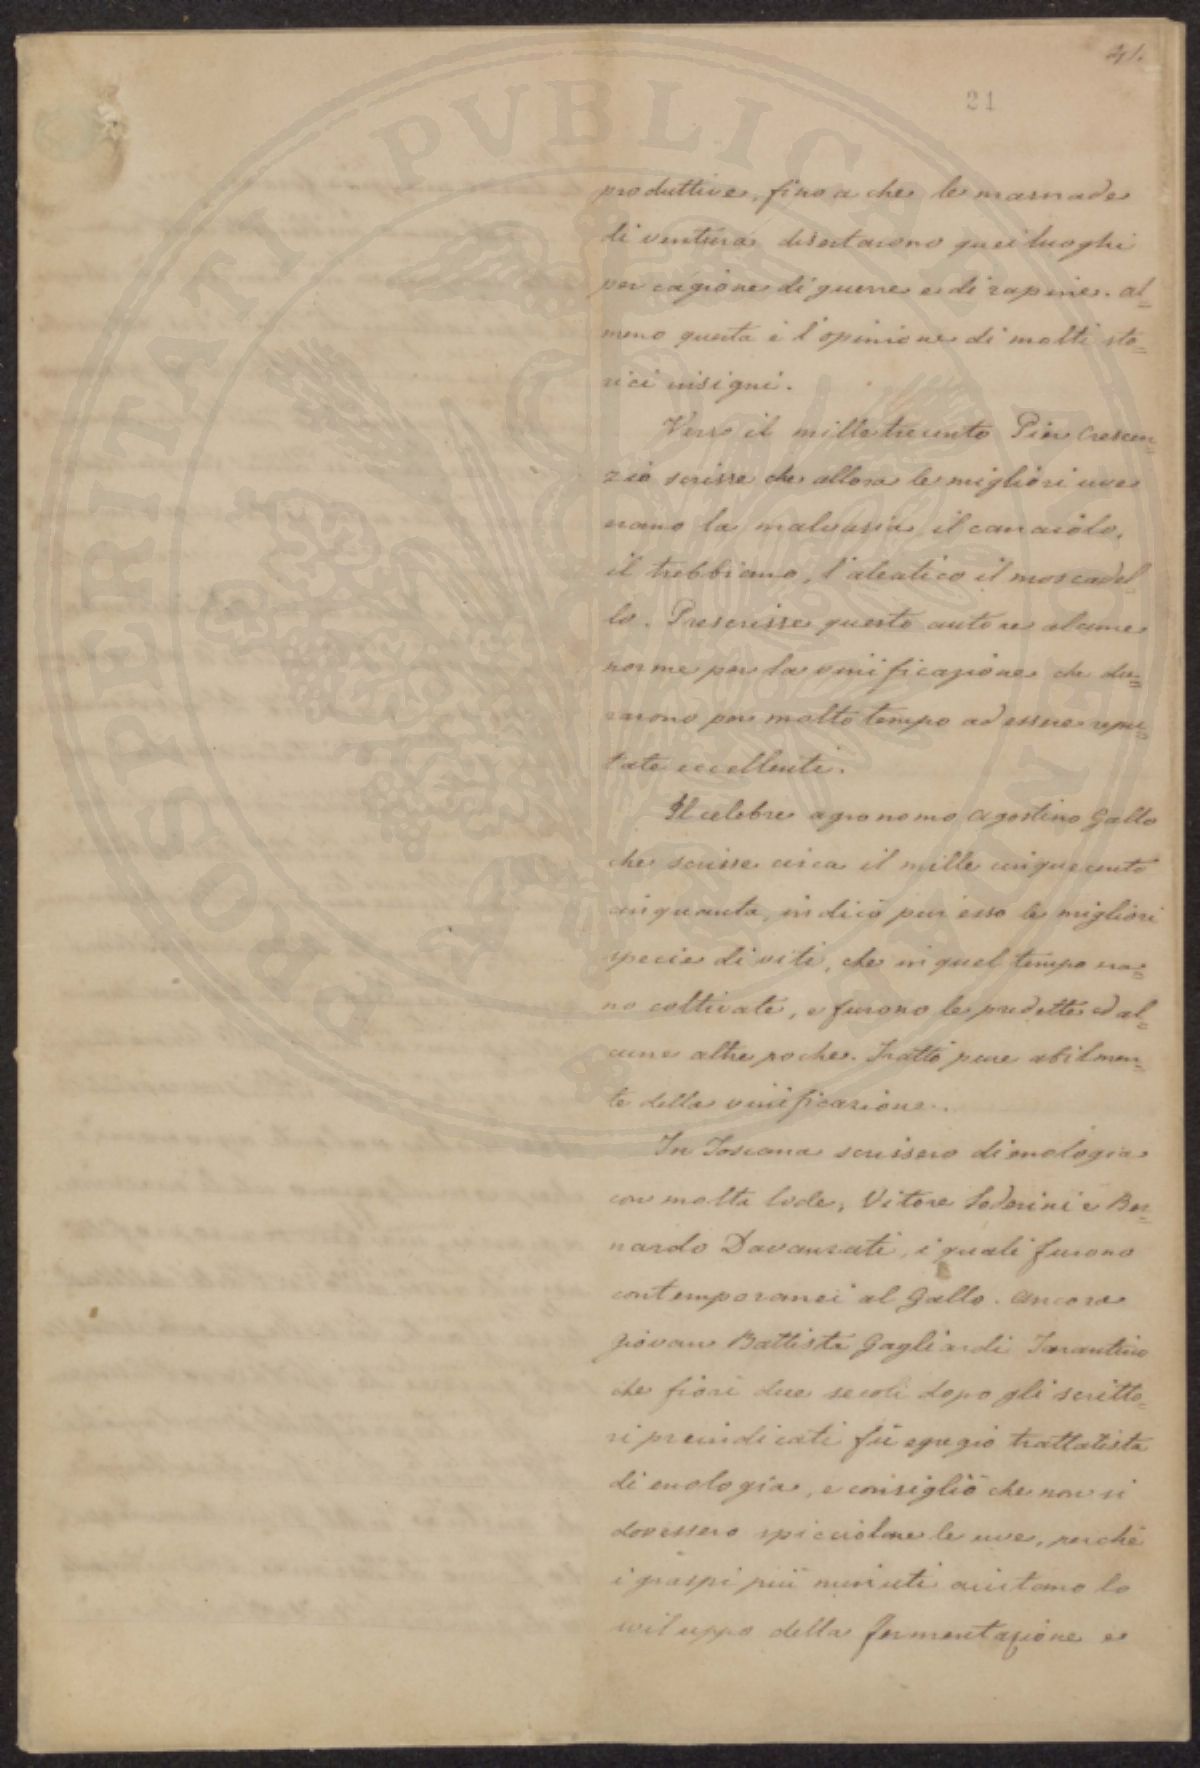 41.
21
PROSPERITATI PVBLICAE AVGENDAE
produttive, fino a che le masnade
di ventura disertarono quei luoghi
per cagione di guerre e di rapine. Al=
meno questa è l'opinione di molti sto=
rici insigni.
Verso il milletrecento Pier Crescen=
zio scrisse che allora le migliori uve
erano la malvasia, il canaiolo,
il trebbiano, l'aleatico il moscadel
lo. Prescrisse questo autore alcune
norme per la vinificazione che du=
rarono per molto tempo ad essere repu=
tate eccellenti.
Il celebre agronomo Agostino Gallo
che scrisse circa il mille cinquecento
cinquanta, indicò pur esso le migliori
specie di viti, che in quel tempo era=
no coltivate, e furono le predette ed al=
cune altre poche. Trattò pure abilmen=
te della vinificazione.
In Toscana scrissero di enologia
con molta lode, Vitore Soderini e Ber=
nardo Davanzati, i quali furono
contemporanei al Gallo. Ancora
Giovan Battista Gagliardi Tarantino
che fiorì due secoli dopo gli scritto=
ri preindicati fù egregio trattatista
di enologia, e consigliò che non si
dovessero spicciolare le uve, perchè
i graspi più minuti aiutano lo
sviluppo della fermentazione e